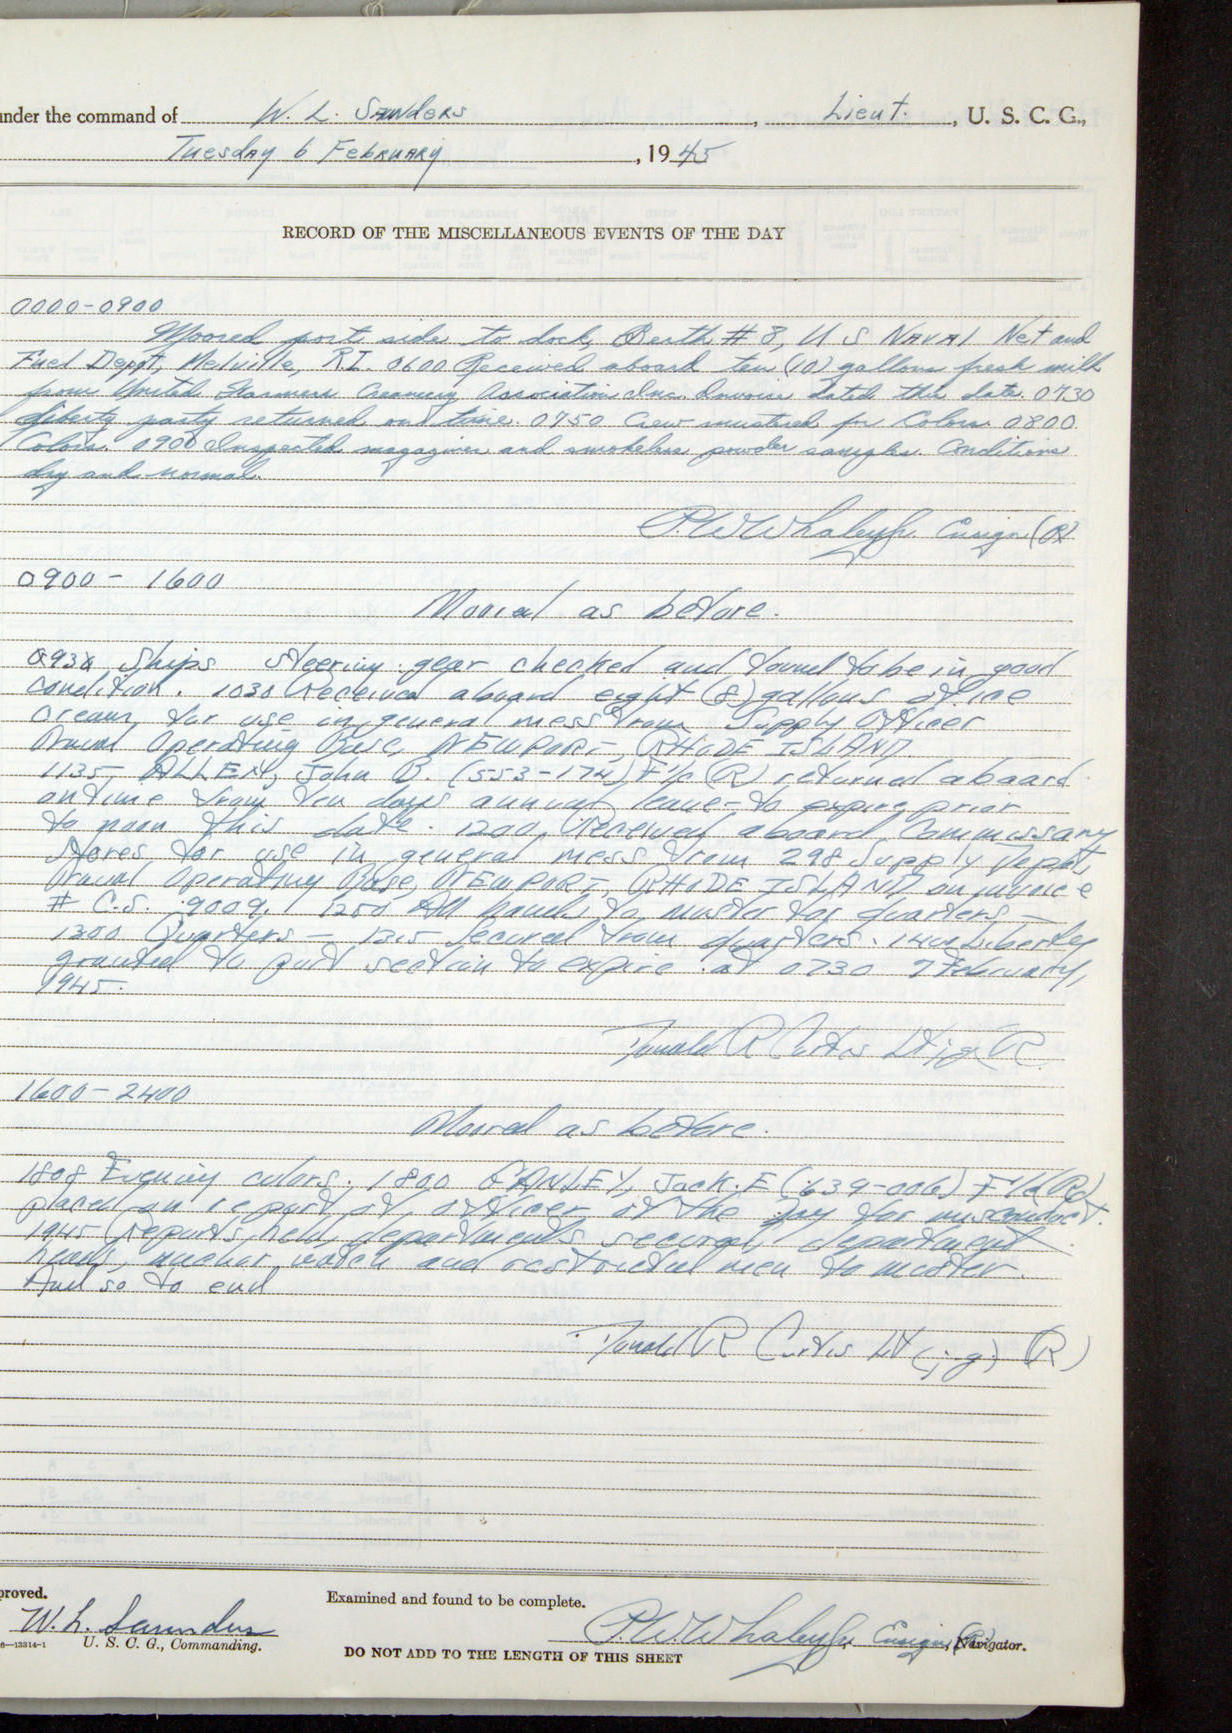 nder the command of W. L. Saunders, Lieut., U. S. C. G.,
Tuesday 6 February, 1945
RECORD OF THE MISCELLANEOUS EVENTS OF THE DAY
0000-0900
Moored port side to dock, Berth # 8, U S Naval Net and
Fuel Depot, Melville, R.I. 0600 Received aboard ten (10) gallons fresh milk
from United Farmers Creamery Association Inc. Invoice dated this date. 0730
liberty party returned on time. 0750 Crew mustered for Colors. 0800
Colors. 0900 Inspected magazines and smokeless powder samples. Conditions
dry and normal.
P.W. Whaley Jr. Ensign (R)
0900 - 1600
Moored as before.
0930 Ships steering gear checked and found to be in good
condition. 1030 Received aboard eight (8) gallons of ice
cream, for use in general mess from Supply Officer
Naval Operating Base, NEWPORT, RHODE ISLAND
1135 ALLEN, John B. (553-174) F1/c (R) returned aboard
on time from ten days annual leave - to expire prior
to noon this date. 1200, Received aboard Commissary
stores, for use in general mess from 298 Supply Depot,
Naval Operating Base, NEWPORT, RHODE ISLAND on invoice
# C.S. 9009. 1250 All hands to muster for quarters -
1300 Quarters - 1315 Secured from quarters. 1400 Liberty
granted to port section to expire at 0730 7 February,
1945.
Donald R Curtis Lt(jg) R
1600-2400
Moored as before.
1808 Evening colors. 1800 Jack E (639-006) F1/c (R)
placed on report of officer of the Day for misconduct.
1945 Reports held, departments secured, department
heads, anchor watch and restricted men to muster.
And so to end
Donald R Curtis Lt (j.g.) (R)
proved.
W. L. Saunders
6—13314-1 U. S. C. G., Commanding.
Examined and found to be complete.
P.W. Whaley Jr., Ensign (R) Navigator.
DO NOT ADD TO THE LENGTH OF THIS SHEET